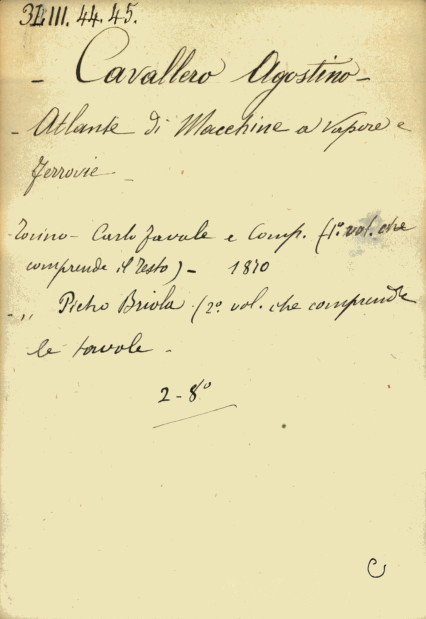 34.III.44.45.
- Cavallero Agostino -
- Atlante di Macchine a Vapore e
ferrovie -
- Torino - Carlo Favale e Comp. (1º. vol. che
comprende il Testo) - 1870
- ,, Pietro Briola (2º. vol. che comprende
le tavole -
2 - 8º
C